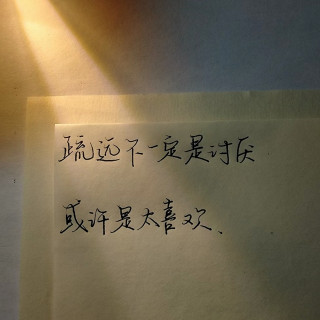 疏远不一定是讨厌
或许是太喜欢、